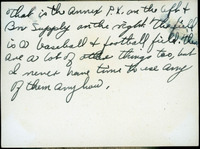 that is the Annex P.X. on the left &
Bn Supply on the right. The field
is a baseball & football field. there
are a lot of other things too, but
I never have time to use any
of them anyhow.